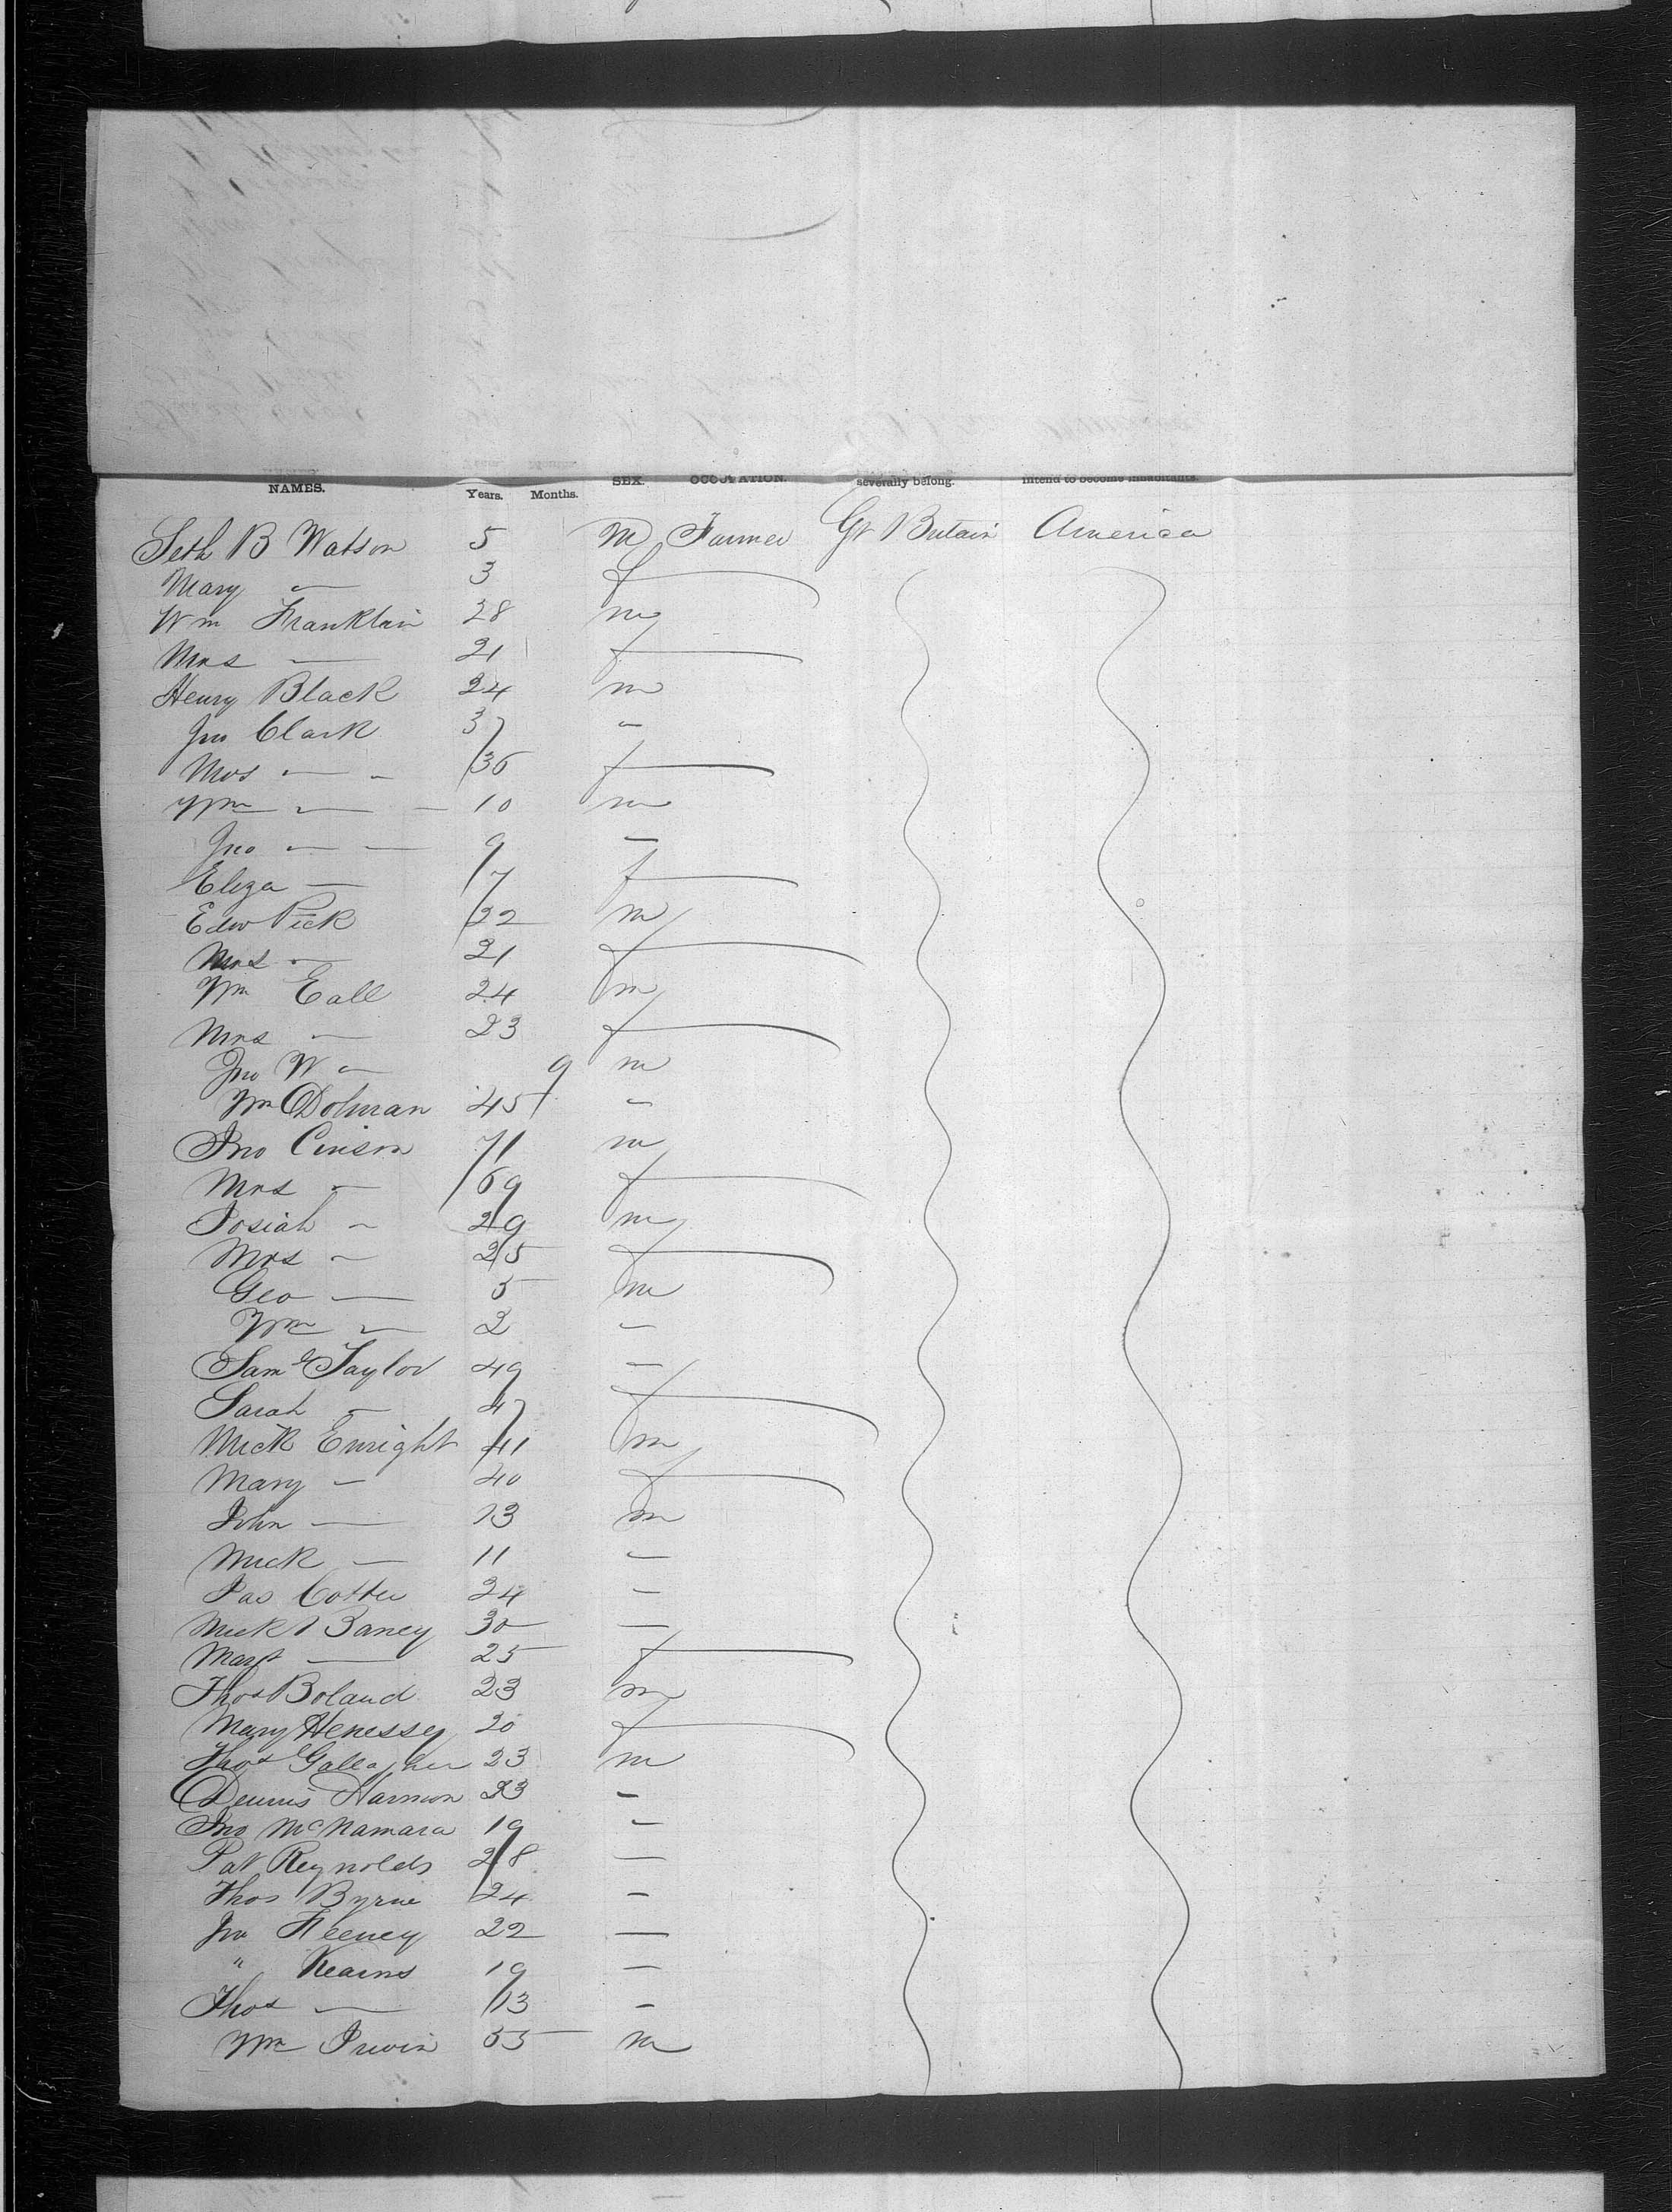 NAMES. Years. Months. SEX. OCCUPATION. severally belong. intend to become inhabitants.
Seth B Watson 5 M Farmer Gt Britain America
Mary — 3 f
Wm Franklin 28 m
Mrs — 21 f
Henry Black 24 m
Jno Clark 37 -
Mrs — - 36 f
Wm — - 10 m
Jno — — 9 -
Eliza — 7 f
Edw Pick 22 m
Mrs — 21 f
Wm Eall 24 m
Mrs — 23 f
Jno W - 9 m
Wm Dolman 45 -
Jno 71 m
Mrs - 69 f
Josiah - 29 m
Mrs - 25 f
Geo — 5 m
Wm — 2 -
Saml Taylor 49 -
Sarah - 47 f
Mick Enright 41 m
Mary - 40 f
John — 13 m
Mick — 11 -
Jas Cotter 24 -
Mick 30 —
Margt — 25 f
Thos Boland 23 m
Mary Henessey 20 f
Thos Gallagher 23 m
Dennis Harmon 23 -
Jno McNamara 19 -
Pat Reynolds 28 —
Thos Byrne 24 -
Jno Feeney 22 —
" Kearns 19 —
Thos — 13 -
Wm Irwin 55 m